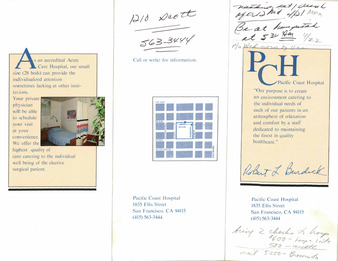 As an accredited Acute
Care Hospital, our small
size (28 beds) can provide the
individualized attention
sometimes lacking at other insti-
tutions.
Your private
physician
will be able
to schedule
your visit
at your
convenience.
We offer the
highest quality of
care catering to the individual
well being of the elective
surgical patient.
1210 Scott
563-3444
Call or write for information.
Pacific Coast Hospital
1635 Ellis Street
San Francisco, CA 94115
(415) 563-3444
Be at
at 5:30
4/22
PCH
Pacific Coast Hospital
"Our purpose is to create
an environment catering to
the individual needs of
each of our patients in an
atmosphere of relaxation
and comfort by a staff
dedicated to maintaining
the finest in quality
healthcare."
Robert L. Burdick
Pacific Coast Hospital
1635 Ellis Street
San Francisco, CA 94115
(415) 563-3444
bring 2 checks